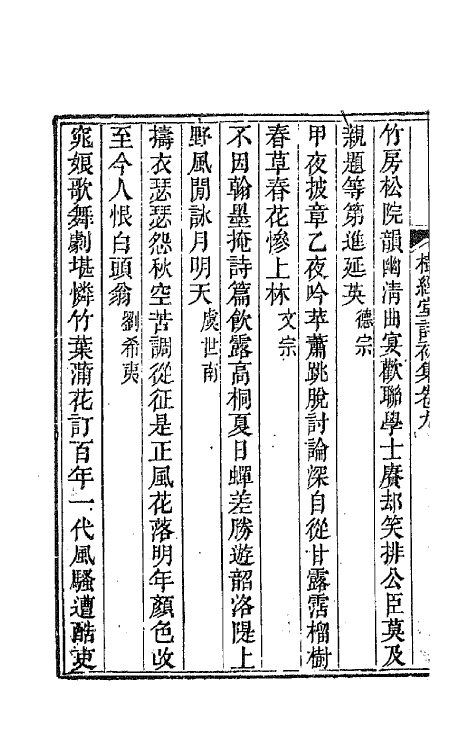 樹經堂詩初集卷九
竹房松院韻幽清曲宴歡聯學士賡却笑排公臣莫及
親題等第進延英德宗
甲夜披章乙夜吟苹蕭跳脫討論深自從甘露霑榴樹
春草春花慘上林文宗
不因翰墨掩詩篇飲露高桐夏日蟬差勝遊韶洛隄上
野風閒詠月明天虞世南
擣衣瑟瑟怨秋空苦調從征是正風花落明年顏色改
至今人恨白頭翁劉希夷
窕娘歌舞劇堪憐竹葉蒲花訂百年一代風騷遭酷吏